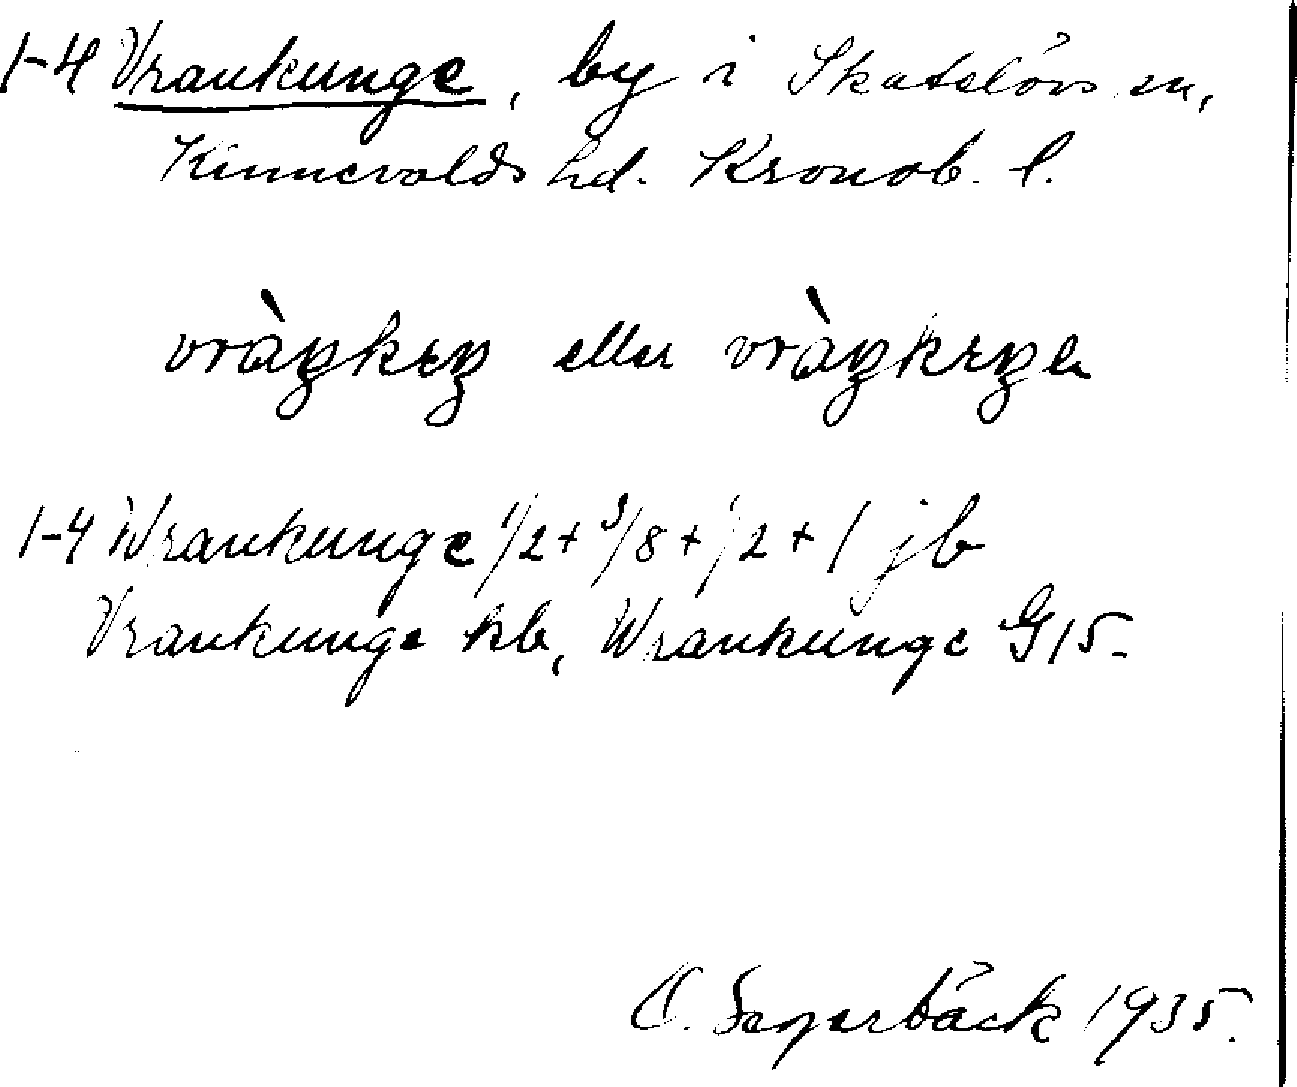 1-4 Vrankunge, by i Skatelövs sn,
Kinnevalds hd. Kronob. l.
vràŋkɛŋ eller vràŋkɛŋe
1-4 Wrankunge 1/2+3/8+1/2+1 jb
Vrankunge kb, Wrankunge G15.
O. 1935.